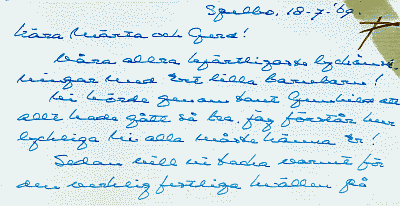 Spelbo, 18-7-'69.
Kära Märta och Gurd!
Våra allra hjärtligaste lyckönsk-
ningar med Ert lilla barnbarn!
Vi hörde genom tant Gunhild att
allt hade gått så bra. Jag förstår hur
lyckliga Ni alla måste känna Er!
Sedan vill vi tacka varmt för
den verkligt festliga kvällen på